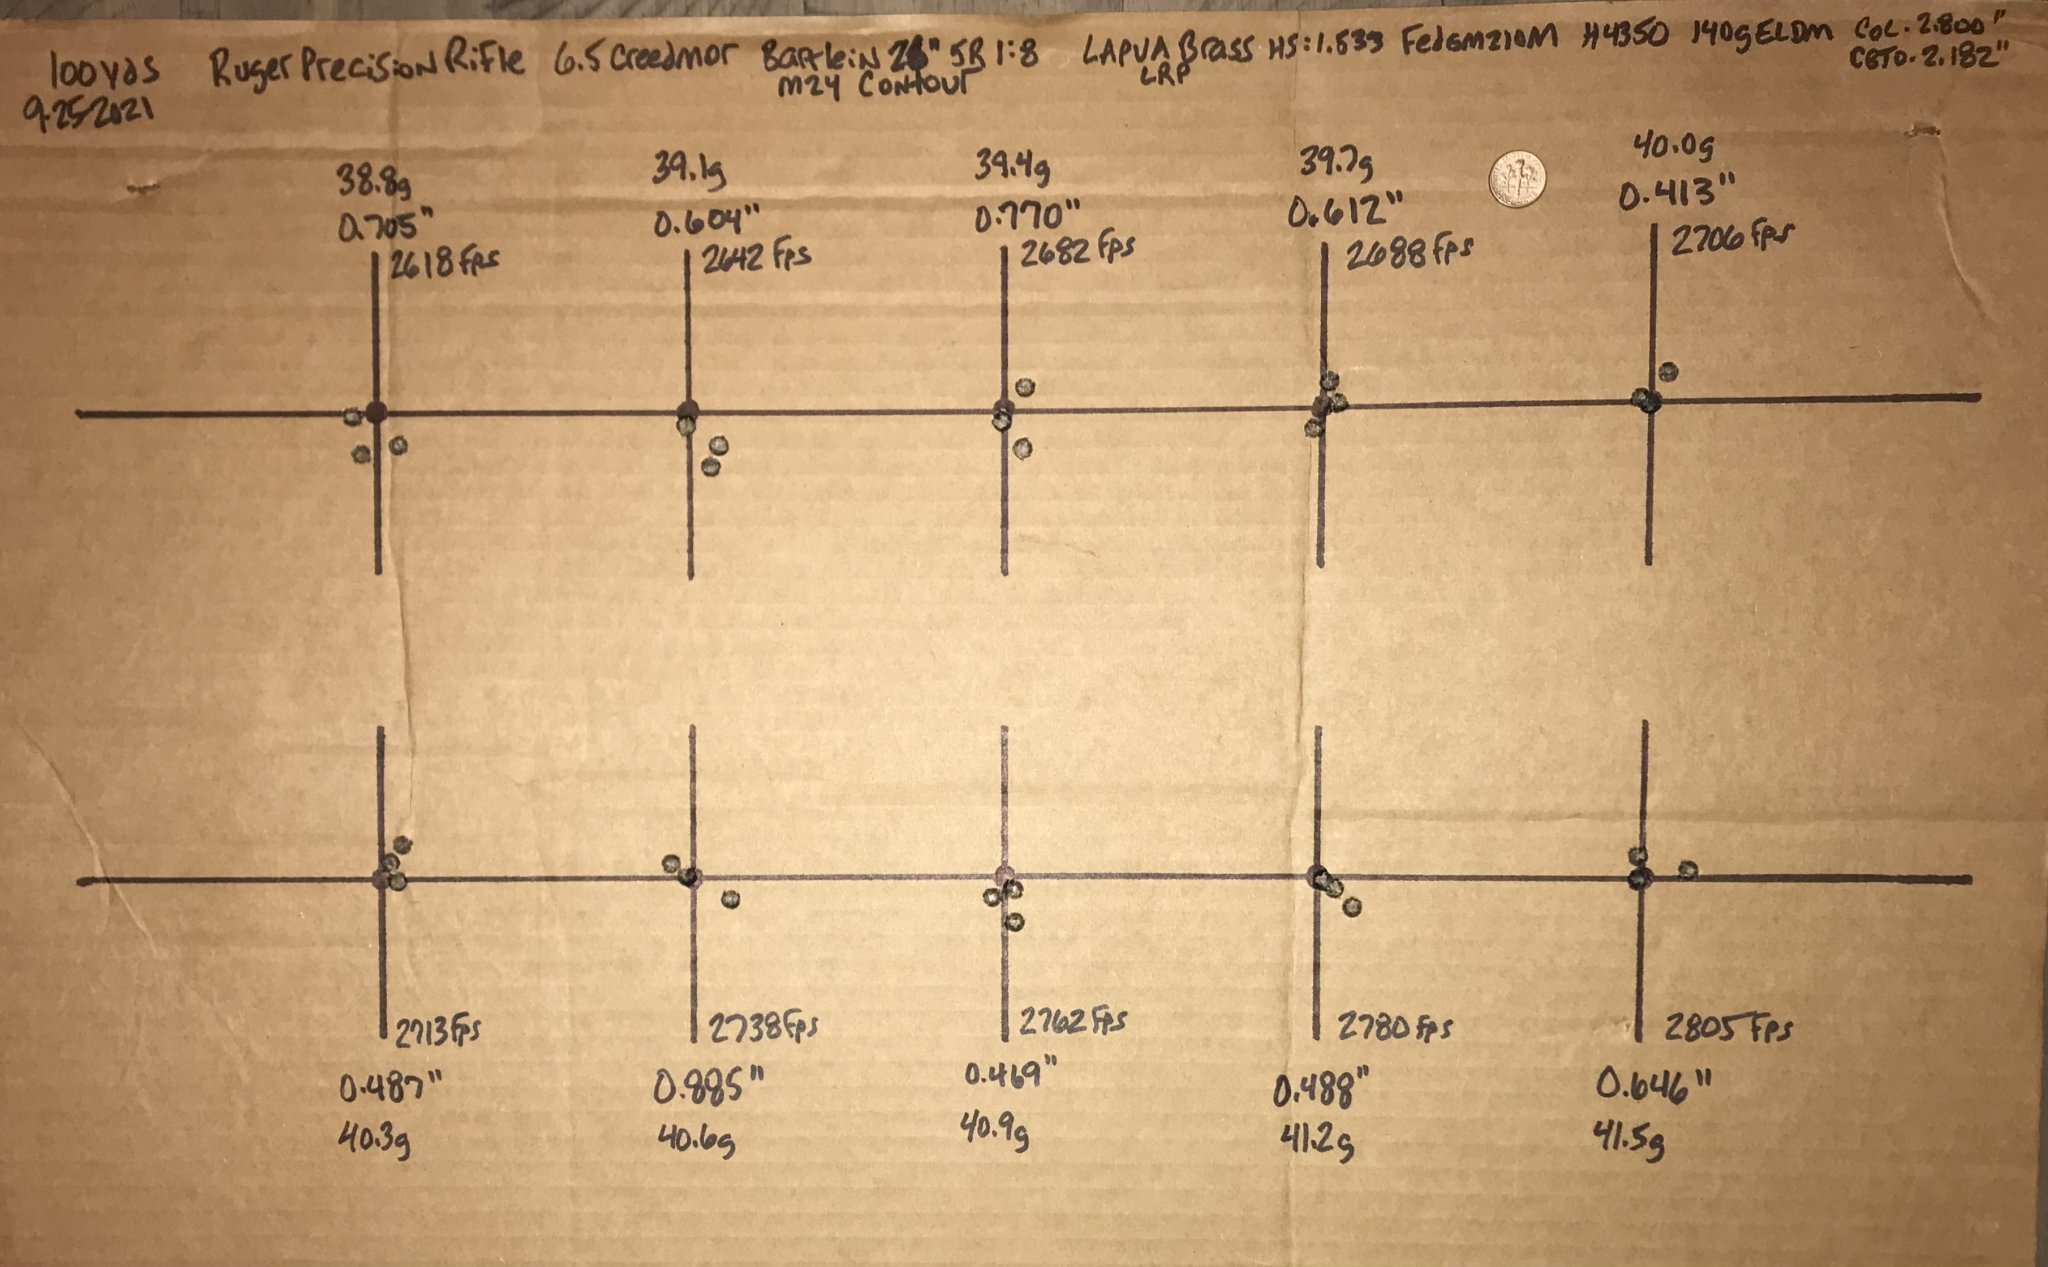 100yds Ruger Precision Rifle 6.5 Creedmor Bartlein 26" 5R 1:8 LAPUA Brass HS:1.533 Fed GM210M H4350 140g ELDM COL. 2.800"
9-25-2021 M24 Contour LRP CBTO. 2.182"
38.8g 39.1g 39.4g 39.7g 40.0g
0.705" 0.604" 0.770" 0.612" 0.413"
2618 Fps 2642 Fps 2682 Fps 2688 Fps 2706 Fps
2713 Fps 2738 Fps 2762 Fps 2780 Fps 2805 Fps
0.487" 0.885" 0.469" 0.488" 0.646"
40.3g 40.6g 40.9g 41.2g 41.5g